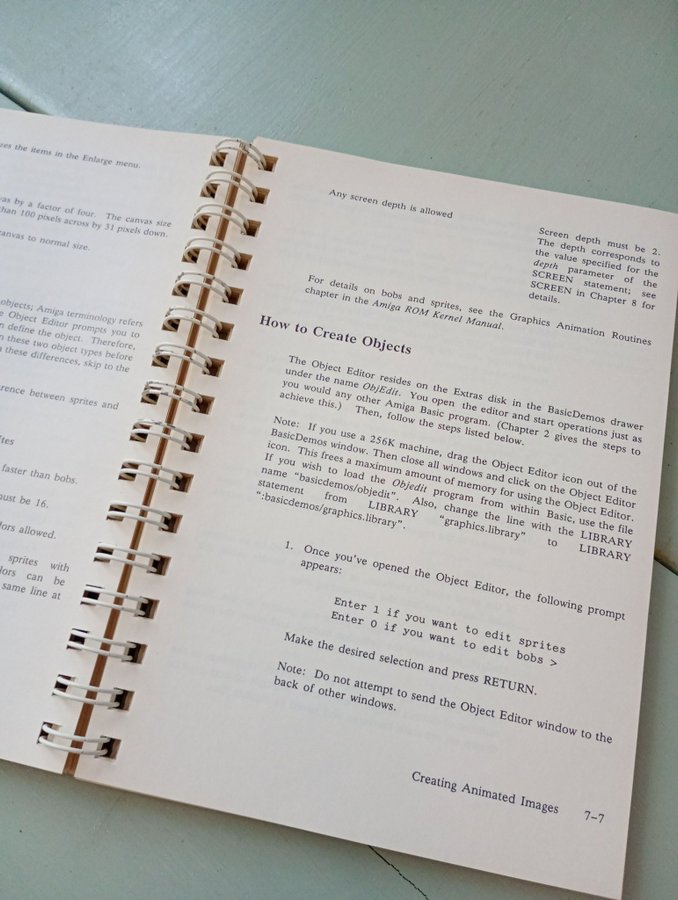 zes the items in the Enlarge menu.
vas by a factor of four. The canvas size
han 100 pixels across by 31 pixels down.
canvas to normal size.
objects; Amiga terminology refers
e Object Editor prompts you to
n define the object. Therefore,
n these two object types before
these differences, skip to the
rence between sprites and
ites
faster than bobs.
ust be 16.
lors allowed.
sprites with
lors can be
same line at
Any screen depth is allowed
Screen depth must be 2.
The depth corresponds to
the value specified for the
depth parameter of the
SCREEN statement; see
SCREEN in Chapter 8 for
details.
For details on bobs and sprites, see the Graphics Animation Routines
chapter in the Amiga ROM Kernel Manual.
How to Create Objects
The Object Editor resides on the Extras disk in the BasicDemos drawer
under the name ObjEdit. You open the editor and start operations just as
you would any other Amiga Basic program. (Chapter 2 gives the steps to
achieve this.) Then, follow the steps listed below.
Note: If you use a 256K machine, drag the Object Editor icon out of the
BasicDemos window. Then close all windows and click on the Object Editor
icon. This frees a maximum amount of memory for using the Object Editor.
If you wish to load the Objedit program from within Basic, use the file
name "basicdemos/objedit". Also, change the line with the LIBRARY
statement from LIBRARY "graphics.library" to LIBRARY
":basicdemos/graphics.library".
1. Once you've opened the Object Editor, the following prompt
appears:
Enter 1 if you want to edit sprites
Enter 0 if you want to edit bobs >
Make the desired selection and press RETURN.
Note: Do not attempt to send the Object Editor window to the
back of other windows.
Creating Animated Images 7-7